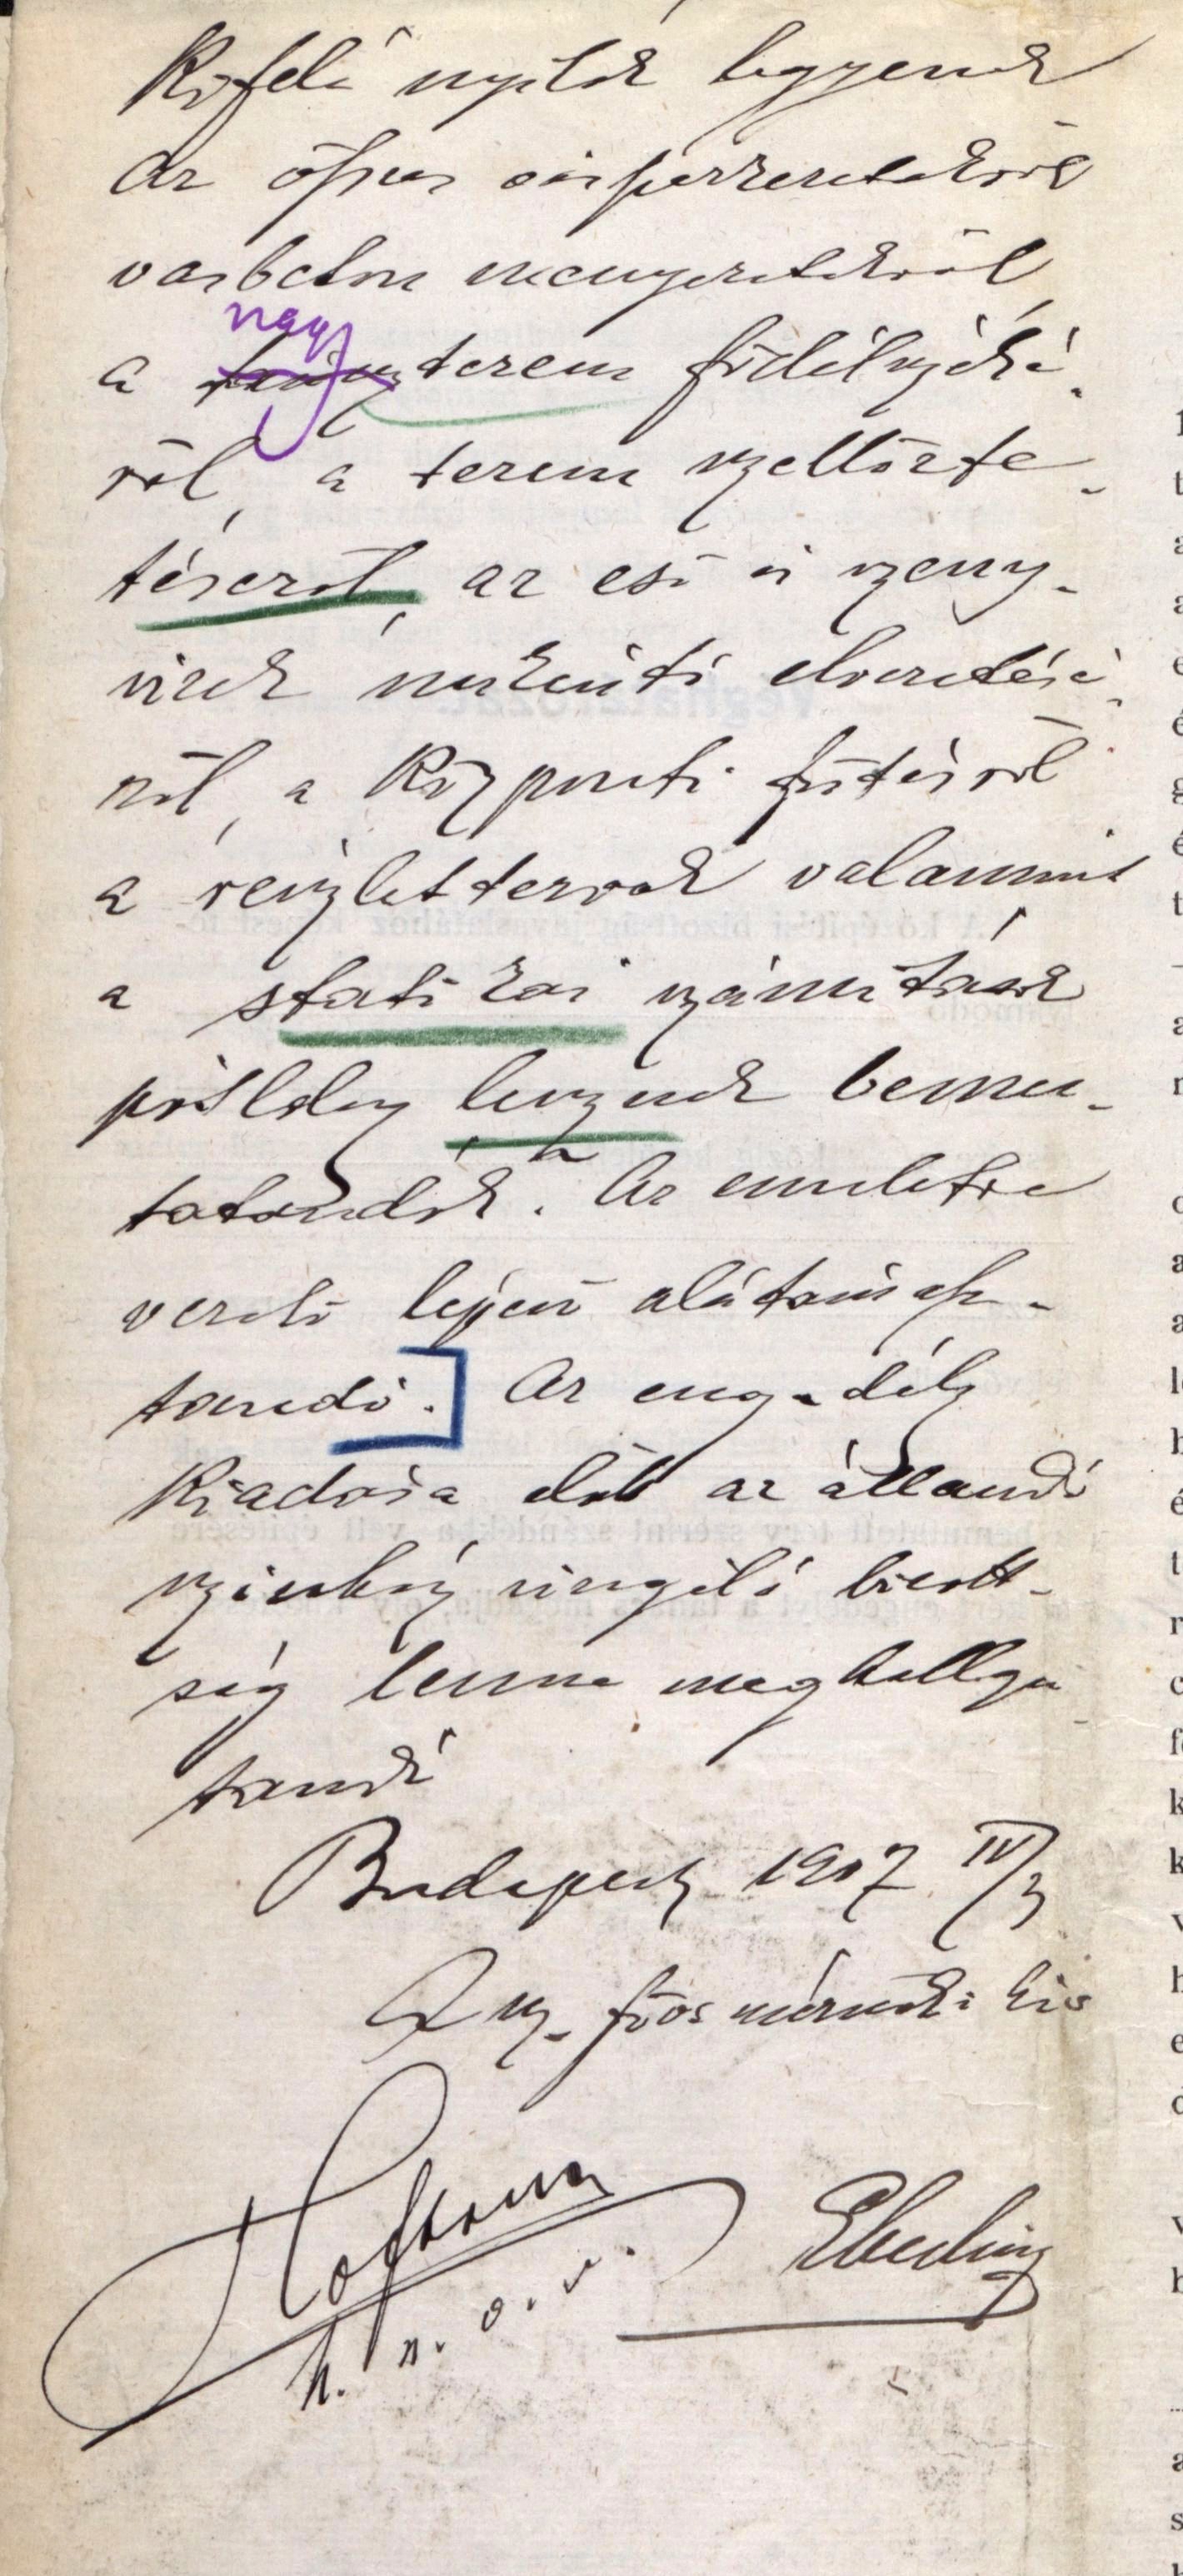 Kifelé nyílók legyenek
Az összes vasszerkezetekről
vasbeton mennyezetekről,
a nagy terem födélszéké-
ről, a terem szellőzte-
téséről, az eső és szeny-
vizek miként elvezetésé-
ről, a központi fűtésről
a részlettervek valamint
a statikai számítások
pótlólag lesznek bemu-
tatandók. Az emeletre
vezető lépcső alátámasz-
tandó. Az engedély
kiadása előtt az állandó
színház vizsgáló bizott-
ság lenne meghallga
tandó
Budapest 1907 IV/3
mérnöki hiv
Hofmann
Eberling